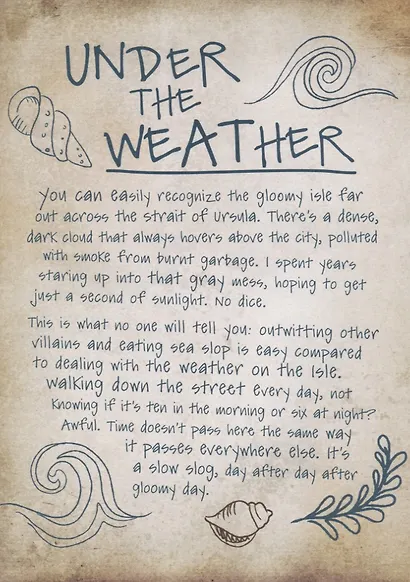 UNDER
THE
WEATHER
You can easily recognize the gloomy isle far
out across the strait of Ursula. There's a dense,
dark cloud that always hovers above the city, polluted
with smoke from burnt garbage. I spent years
staring up into that gray mess, hoping to get
just a second of sunlight. No dice.
This is what no one will tell you: outwitting other
villains and eating sea slop is easy compared
to dealing with the weather on the Isle.
Walking down the street every day, not
knowing if it's ten in the morning or six at night?
Awful. Time doesn't pass here the same way
it passes everywhere else. It's
a slow slog, day after day after
gloomy day.